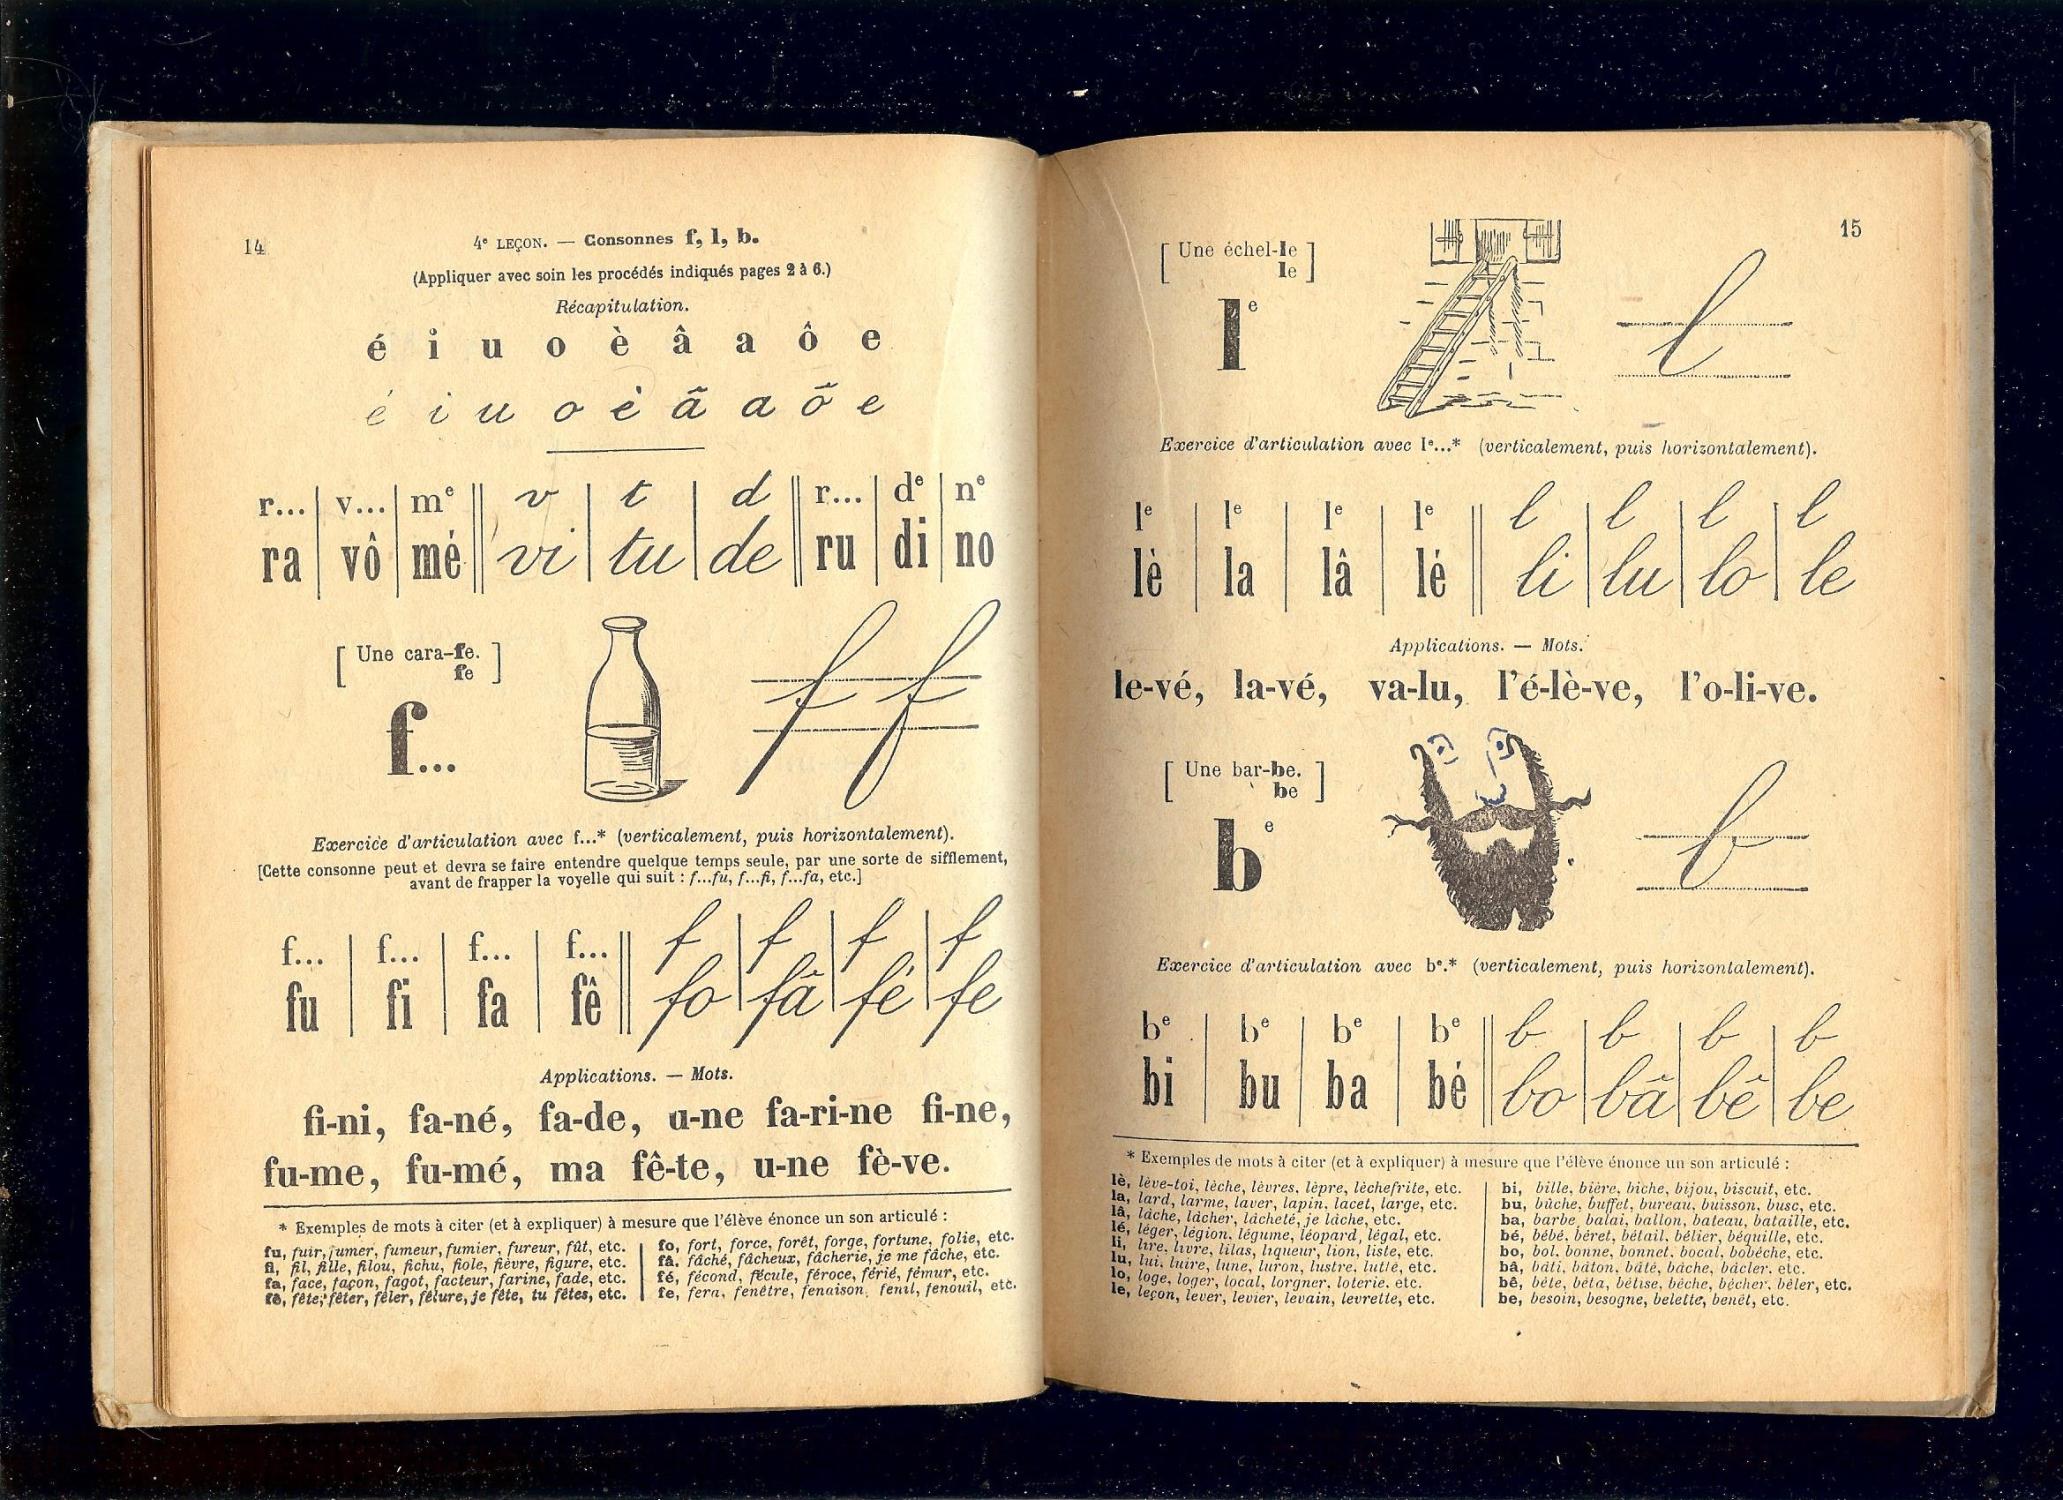 14
4e LEÇON. — Consonnes f, l, b.
(Appliquer avec soin les procédés indiqués pages 2 à 6.)
Récapitulation.
é i u o è â a ô e
é i u o è â a ô e
r... v... me v t d r... de ne
ra vô mé vi tu de ru di no
[ Une cara-fe. ]
fe
f f
f...
Exercice d'articulation avec f...* (verticalement, puis horizontalement).
[Cette consonne peut et devra se faire entendre quelque temps seule, par une sorte de sifflement,
avant de frapper la voyelle qui suit : f...fu, f...fi, f...fa, etc.]
f... f... f... f... f f f f
fu fi fa fê fo fâ fé fe
Applications. — Mots.
fi-ni, fa-né, fa-de, u-ne fa-ri-ne fi-ne,
fu-me, fu-mé, ma fê-te, u-ne fè-ve.
* Exemples de mots à citer (et à expliquer) à mesure que l'élève énonce un son articulé :
fu, fuir, fumer, fumeur, fumier, fureur, fût, etc.
fi, fil, fille, filou, fichu, fiole, fièvre, figure, etc.
fa, face, façon, fagot, facteur, farine, fade, etc.
fê, fête, fêter, fêler, fêlure, je fête, tu fêtes, etc.
fo, fort, force, forêt, forge, fortune, folie, etc.
fâ, fâché, fâcheux, fâcherie, je me fâche, etc.
fé, fécond, fécule, féroce, férié, fémur, etc.
fe, fera, fenêtre, fenaison, fenil, fenouil, etc.
15
[ Une échel-le ]
le
le
l
Exercice d'articulation avec le...* (verticalement, puis horizontalement).
le le le le l l l l
lè la lâ lé li lu lo le
Applications. — Mots.
le-vé, la-vé, va-lu, l'é-lè-ve, l'o-li-ve.
[ Une bar-be. ]
be
be
b
Exercice d'articulation avec be.* (verticalement, puis horizontalement).
be be be be b b b b
bi bu ba bé bo bâ bê be
* Exemples de mots à citer (et à expliquer) à mesure que l'élève énonce un son articulé :
lè, lève-toi, lèche, lèvres, lèpre, lèchefrite, etc.
la, lard, larme, laver, lapin, lacet, large, etc.
lâ, lâche, lâcher, lâcheté, je lâche, etc.
lé, léger, légion, légume, léopard, légal, etc.
li, lire, livre, lilas, liqueur, lion, liste, etc.
lu, lui, luire, lune, luron, lustre, lutte, etc.
lo, loge, loger, local, lorgner, loterie, etc.
le, leçon, lever, levier, levain, levrette, etc.
bi, bille, bière, biche, bijou, biscuit, etc.
bu, bûche, buffet, bureau, buisson, busc, etc.
ba, barbe, balai, ballon, bateau, bataille, etc.
bé, bébé, béret, bétail, bélier, béquille, etc.
bo, bol, bonne, bonnet, bocal, bobèche, etc.
bâ, bâti, bâton, bâté, bâche, bâcler, etc.
bê, bête, bêta, bêtise, bêche, bêcher, bêler, etc.
be, besoin, besogne, belette, benêt, etc.